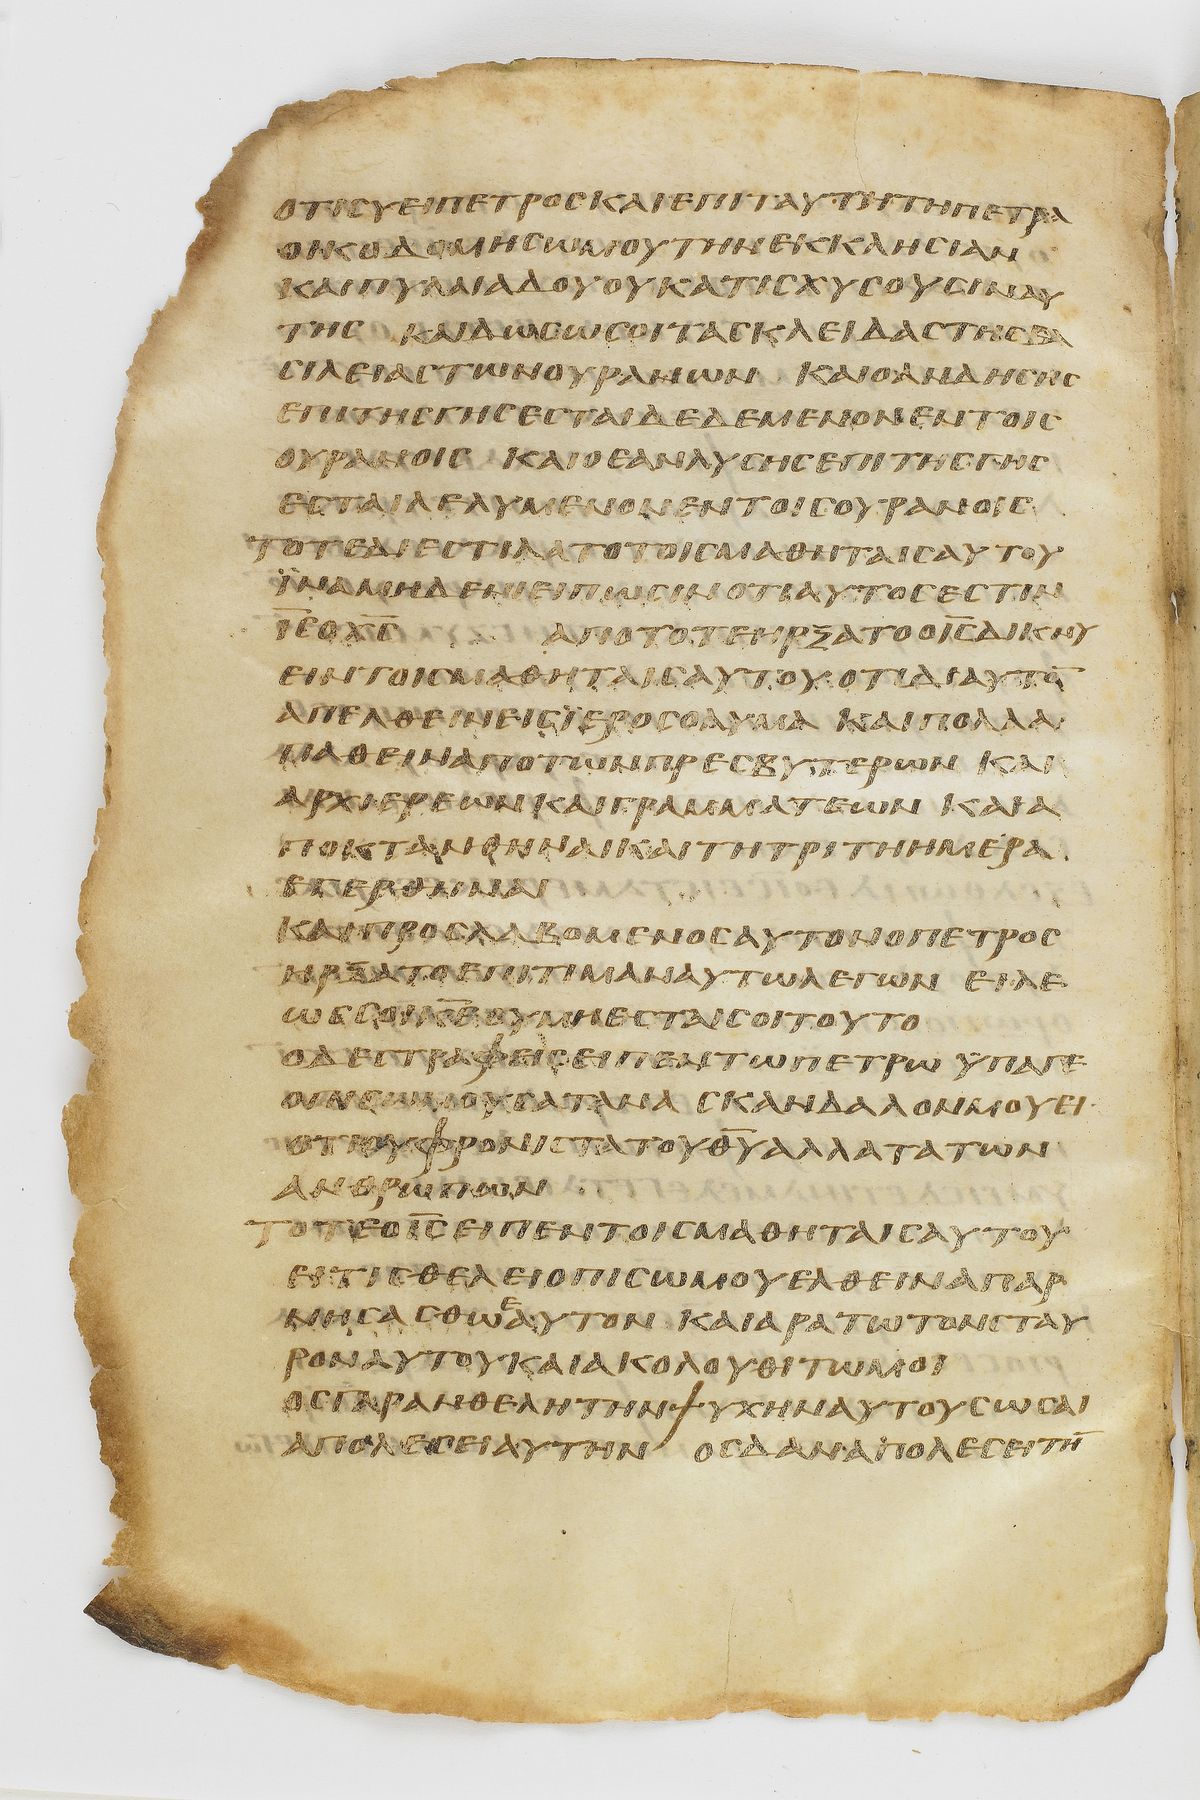 οτιϲυειπετροϲκαιεπιταυτητηπετρα
οικοδομηϲωμουτηνεκκληϲιαν
καιπυλαιαδουουκατιϲχυϲουϲιναυ
τηϲ καιδωϲωϲοιταϲκλειδαϲτηϲβα
ϲιλειαϲτωνουρανων καιοανδηϲηϲ
επιτηϲγηϲεϲταιδεδεμενονεντοιϲ
ουρανοιϲ καιοεανλυϲηϲεπιτηϲγηϲ
εϲταιλελυμενονεντοιϲουρανοιϲ
τοτεδιεϲτιλατοτοιϲμαθηταιϲαυτου
ϊναμηδενιειπωϲινοτιαυτοϲεϲτιν
ι̅ϲ̅οχ̅ϲ̅ αποτοτεηρξατοοι̅ϲ̅δικνυ
ειντοιϲμαθηταιϲαυτουοτιδιαυτο̅
απελθεινειϲϊεροϲολυμα καιπολλα
παθειναποτωνπρεϲβυτερων και
αρχιερεωνκαιγραμματεων καια
ποκτανθηναικαιτητριτηημερα
εγερθηναι
καιπροϲλαβομενοϲαυτονοπετροϲ
ηρξατοεπιτιμαναυτωλεγων ειλε
ωϲϲοικ̅ε̅ουμηεϲταιϲοιτουτο
οδεϲτραφειϲειπεντωπετρω ϋπαγε
οπιϲωμουϲατανα ϲκανδαλονμουει
οτιουφρονιϲτατουθ̅υ̅αλλατατων
ανθρωπων
τοτεοι̅ϲ̅ειπεντοιϲμαθηταιϲαυτου
ειτιϲθελειοπιϲωμουελθειναπαρ
νηϲαϲθωεαυτον καιαρατωτονϲταυ
ροναυτουκαιακολουθιτωμοι
οϲγαρανθελητηνψυχηναυτουϲωϲαι
απολεϲειαυτην οϲδαναπολεϲητη̅